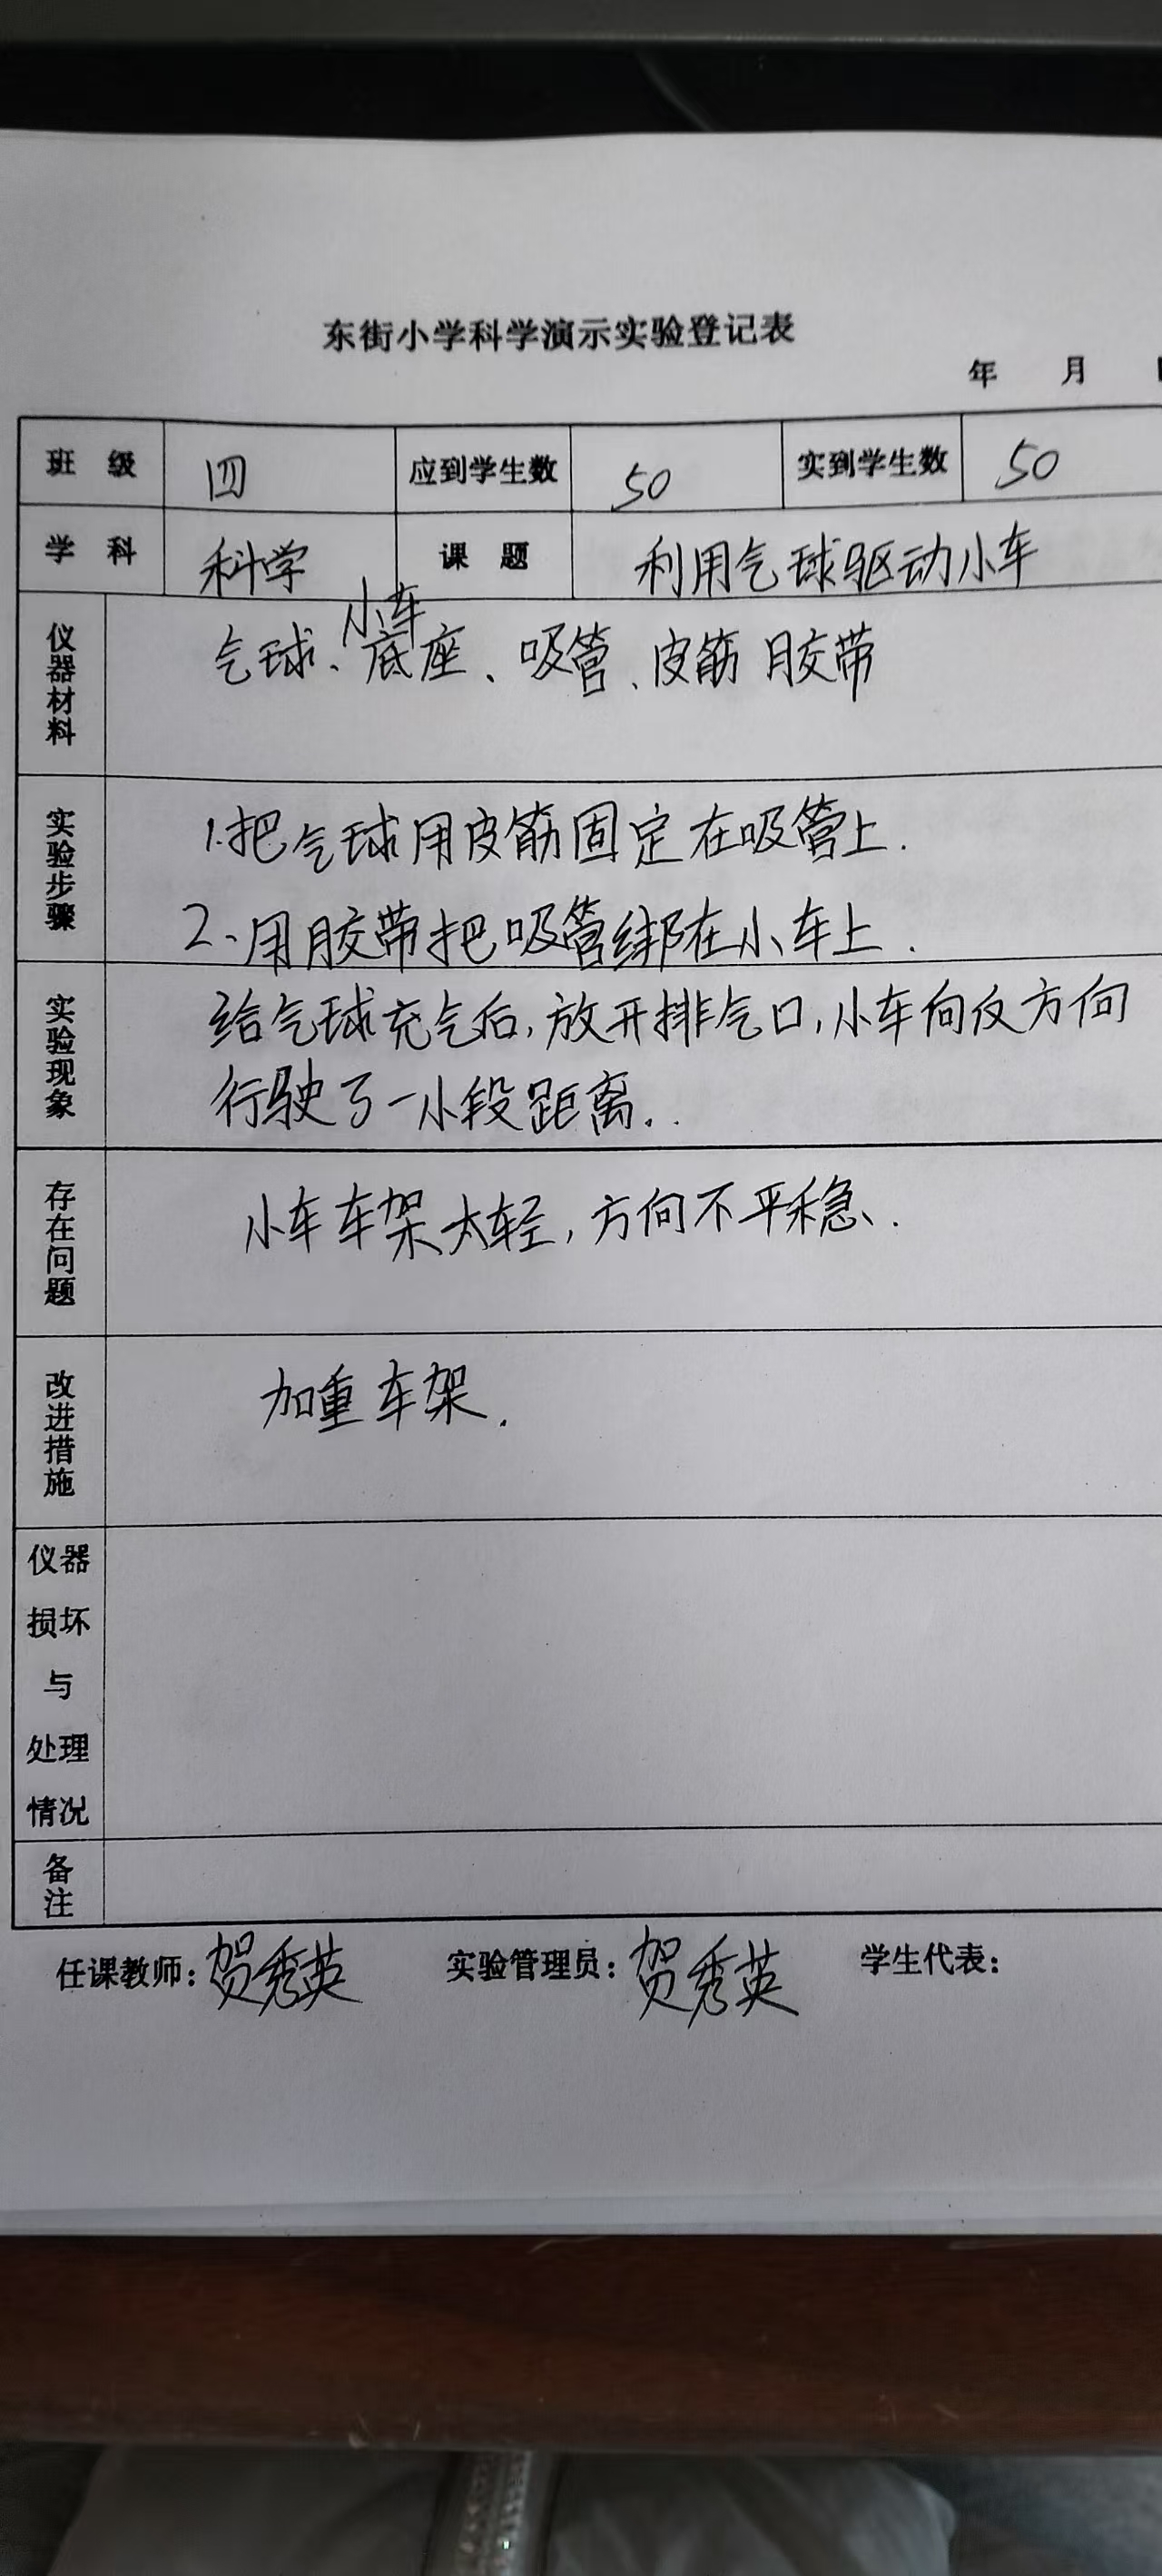 东街小学科学演示实验登记表
年 月
班 级 四 应到学生数 50 实到学生数 50
学 科 科学 课 题 利用气球驱动小车
仪器材料
小车
气球、底座、吸管、皮筋 胶带
实验步骤
1.把气球用皮筋固定在吸管上.
2、用胶带把吸管绑在小车上.
实验现象
给气球充气后,放开排气口,小车向反方向
行驶了一小段距离..
存在问题
小车车架太轻,方向不平稳、.
改进措施
加重车架.
仪器
损坏
与
处理
情况
备注
任课教师:贺秀英 实验管理员:贺秀英 学生代表: